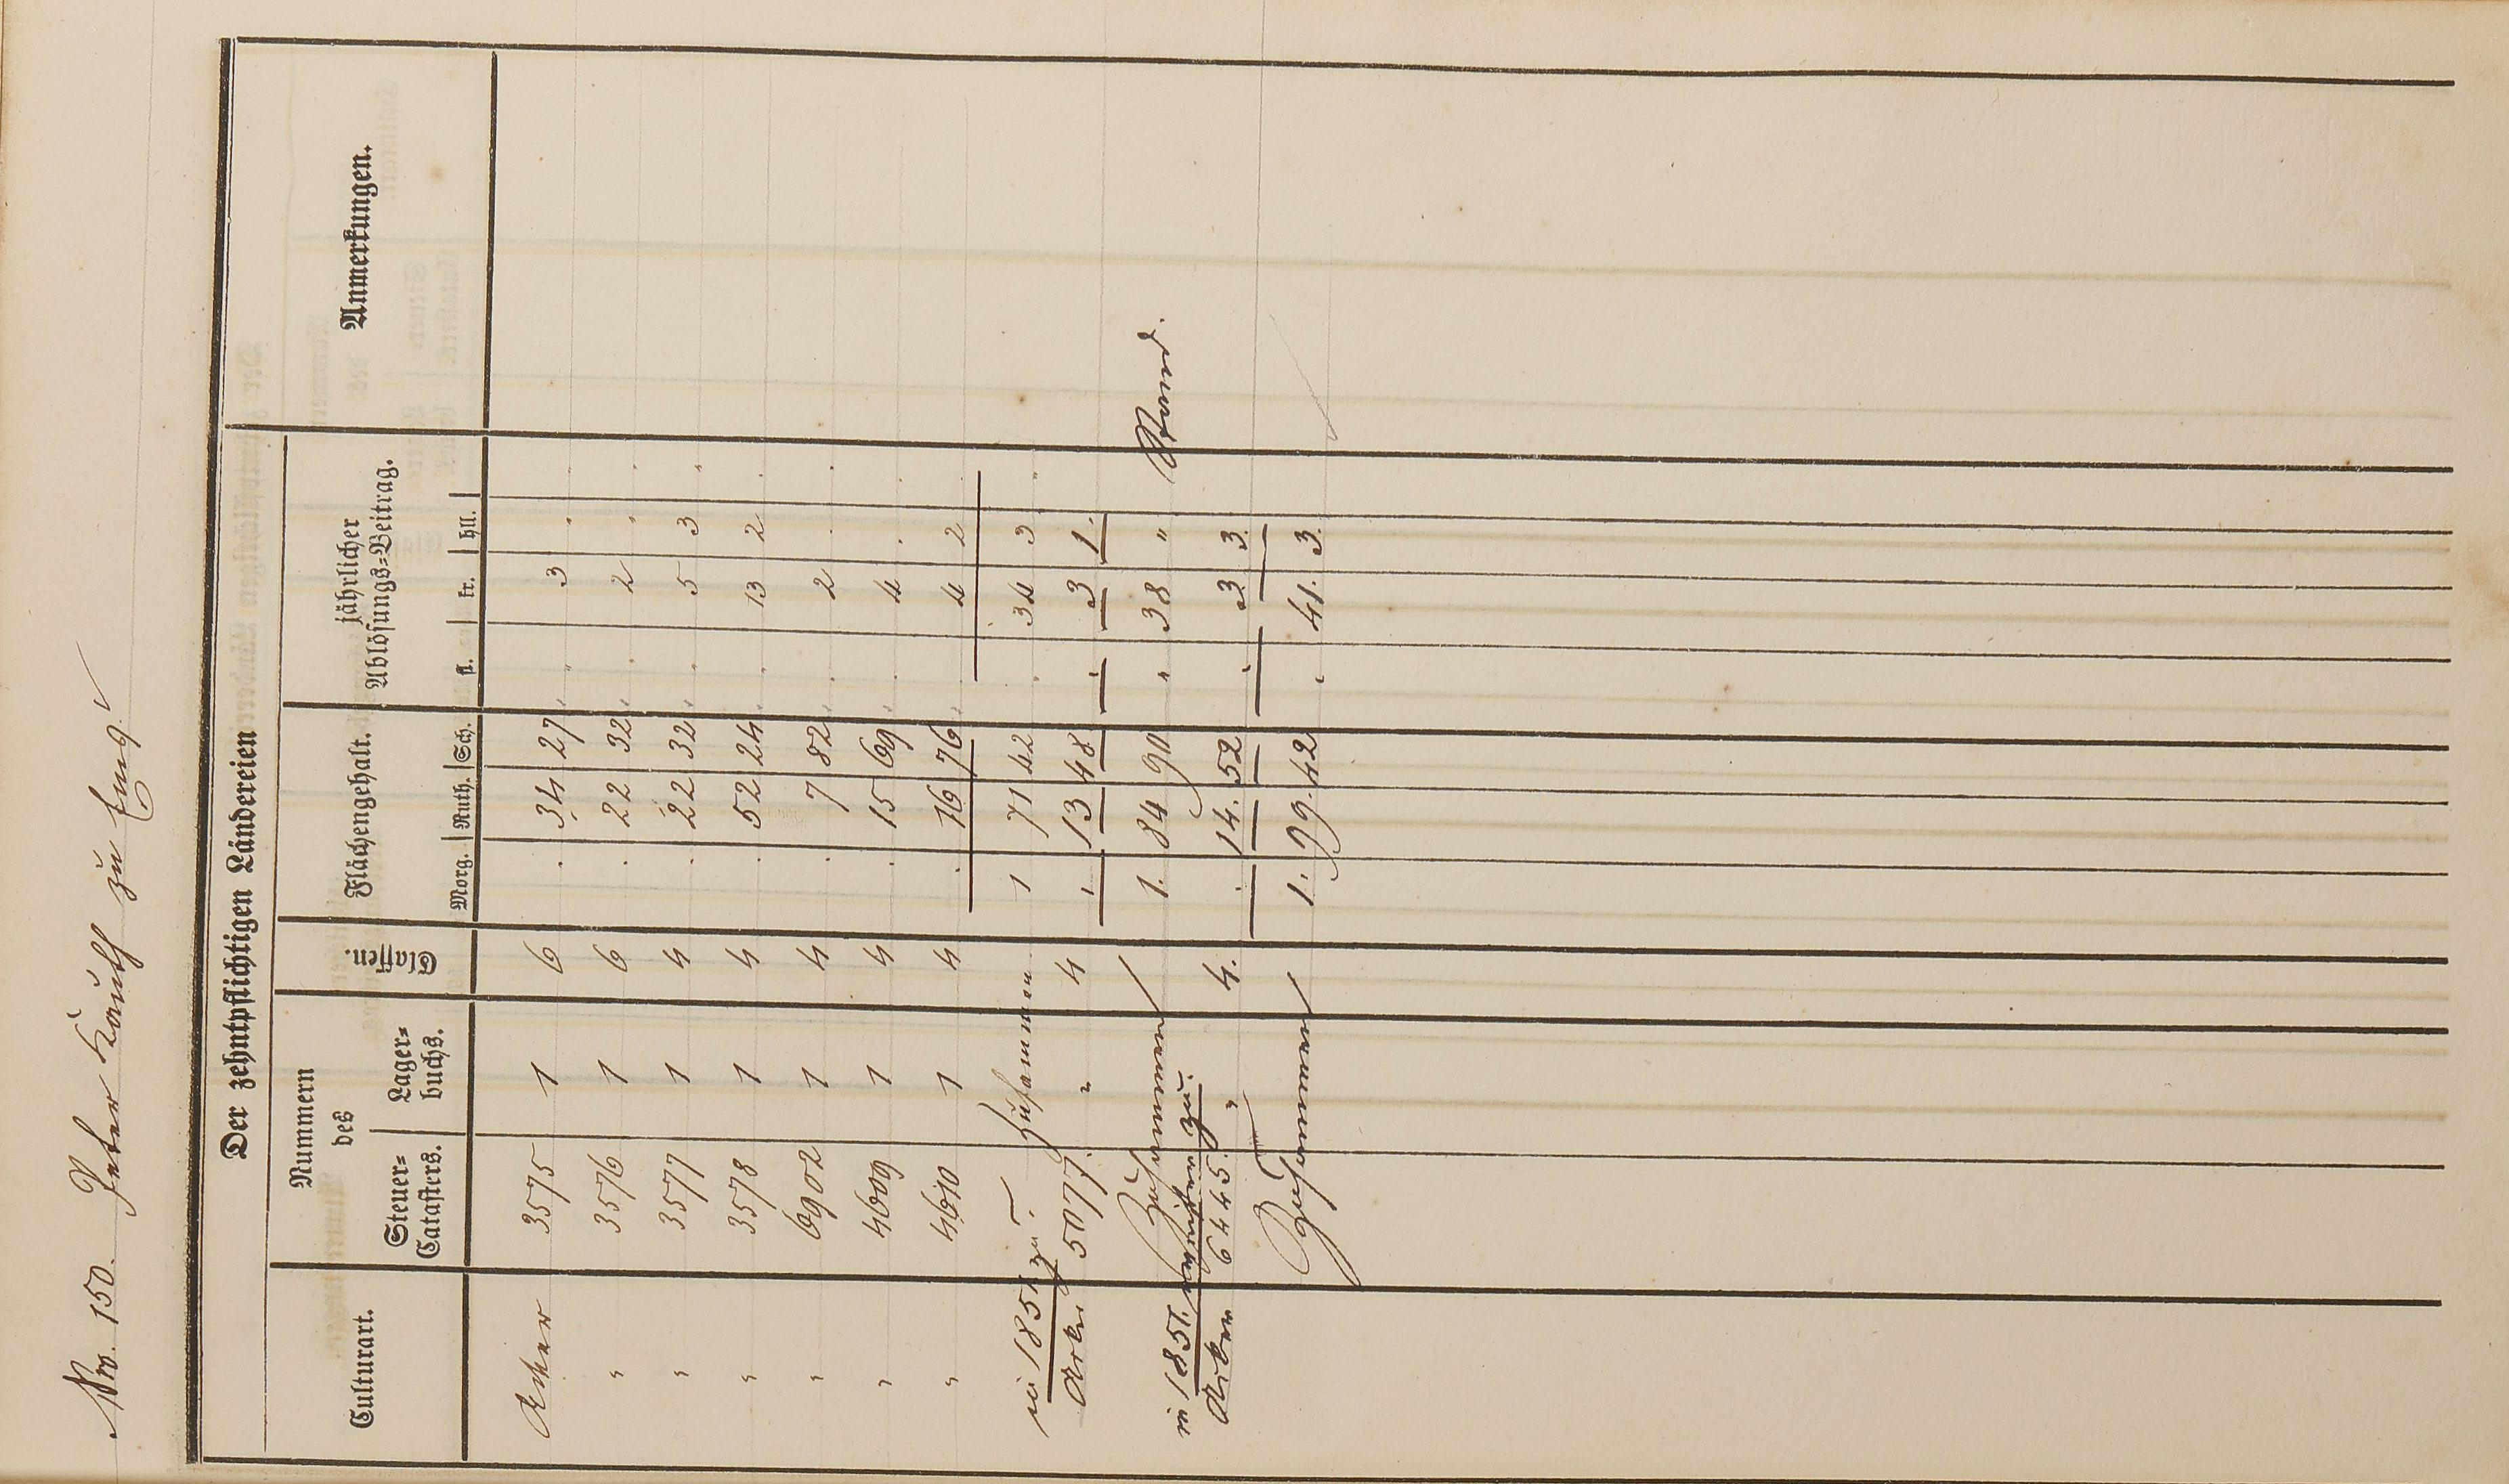 Nro. 150. Peter Kauth zu Ems.
Der zehntpflichtigen Ländereien
Culturart. Nummern des Classen. Flächengehalt. jährlicher Ablösungs=Beitrag. Anmerkungen.
Steuer=Catasters. Lager=buchs. Morg. Ruth. Sch. fl. kr. hll.
Acker 3575 1 6 . 34 27 " 3 .
" 3576 1 6 . 22 32 . 2 .
" 3577 1 4 . 22 32 . 5 3
" 3578 1 4 . 52 24 . 13 2
" 6902 1 4 . 7 82 . 2 .
" 4609 1 4 . 15 69 . 4 .
" 4610 1 4 . 16 76 . 4 2
Zusammen 1 71 42 . 34 3
in 1851 zu:
Acker 5077. " 4 . 13 48 . 3 1.
Zusammen 1. 84 90 " 38 "
in 1851. zu:
Acker 6445. " 4. . 14. 52 . 3. 3.
Zusammen 1. 99. 42 . 41. 3.